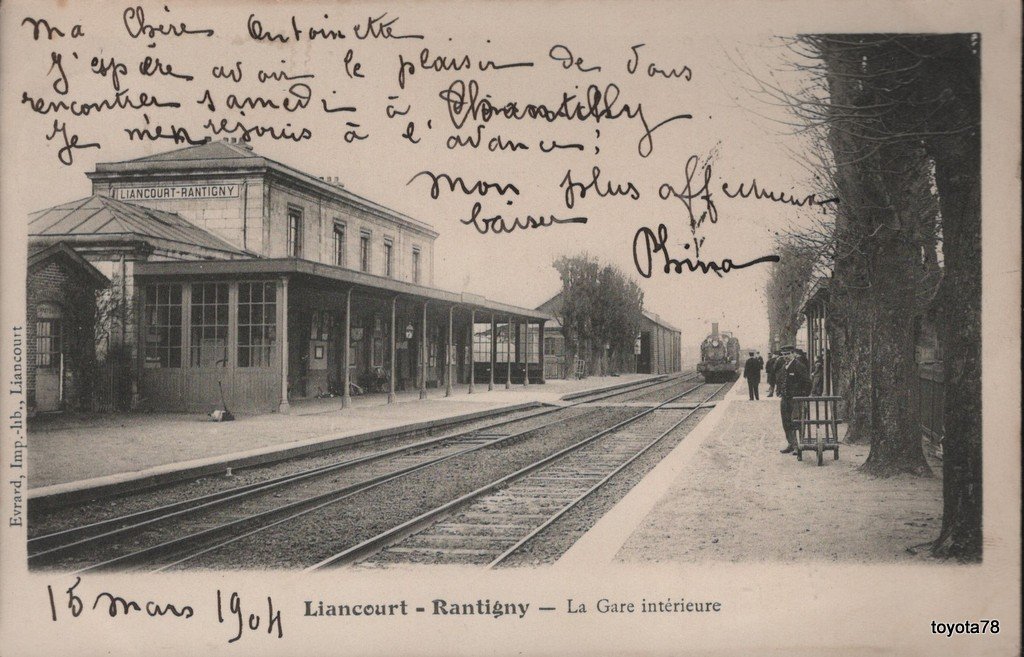 Ma Chère Antoinette
J'espère avoir le plaisir de vous
rencontrer samedi à Chantilly
Je m'en réjouis à l'avance;
Mon plus affectueux
baiser
Phina
LIANCOURT-RANTIGNY
Evrard, Imp.-lib., Liancourt
15 mars 1904
Liancourt - Rantigny — La Gare intérieure
toyota78